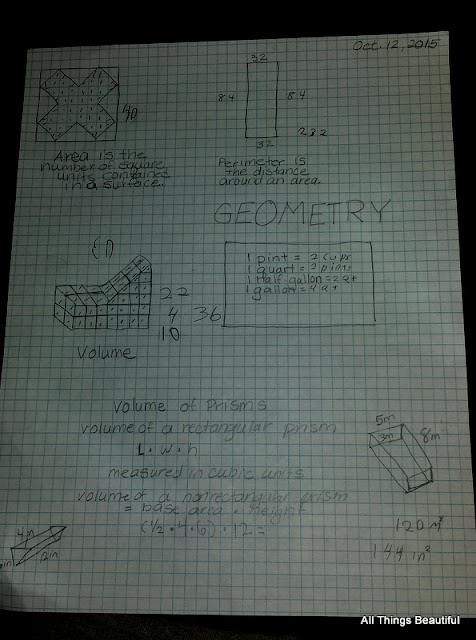 Oct. 12, 2015
32
84
84
32
232
40
Area is the
number of square
units contained
in a surface.
Perimeter is
the distance
around an area.
GEOMETRY
1 pint = 2 cups
1 quart = 2 pints
1 half-gallon = 2 qt
1 gallon = 4 qt
22
4
36
10
Volume
Volume of Prisms
volume of a rectangular prism
L • w • h
measured in cubic units
volume of a nonrectangular prism
= base area • height
(1/2 • 4 • 6) • 12 =
5m
3m
8m
4in
12in
120 m³
144 in³
All Things Beautiful